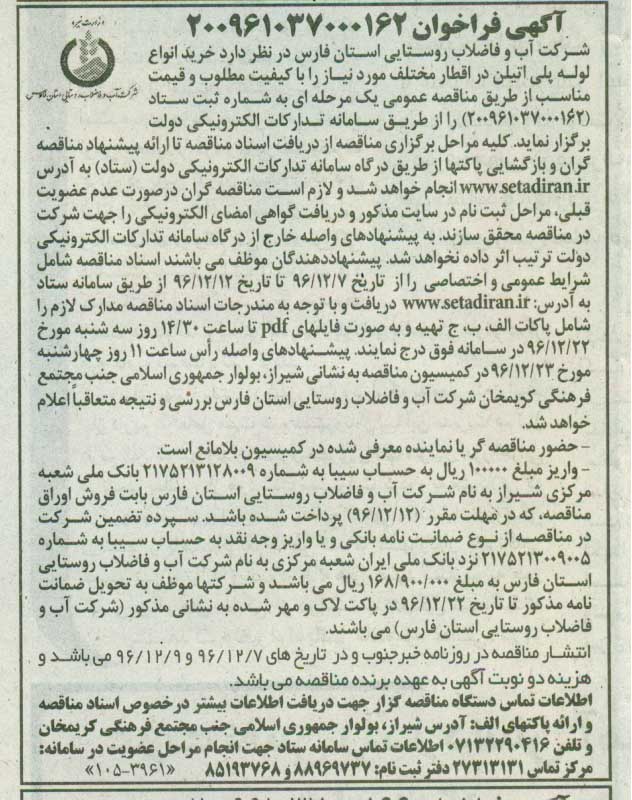 آگهی فراخوان ۲۰۰۹۶۱۰۳۷۰۰۰۱۶۲
وزارت نیرو
شرکت آب و فاضلاب روستایی استان فارس
شرکت آب و فاضلاب روستایی استان فارس در نظر دارد خرید انواع
لوله پلی اتیلن در اقطار مختلف مورد نیاز را با کیفیت مطلوب و قیمت
مناسب از طریق مناقصه عمومی یک مرحله ای به شماره ثبت ستاد
(۲۰۰۹۶۱۰۳۷۰۰۰۱۶۲) را از طریق سامانه تدارکات الکترونیکی دولت
برگزار نماید. کلیه مراحل برگزاری مناقصه از دریافت اسناد مناقصه تا ارائه پیشنهاد مناقصه
گران و بازگشایی پاکتها از طریق درگاه سامانه تدارکات الکترونیکی دولت (ستاد) به آدرس
www.setadiran.ir انجام خواهد شد و لازم است مناقصه گران درصورت عدم عضویت
قبلی، مراحل ثبت نام در سایت مذکور و دریافت گواهی امضای الکترونیکی را جهت شرکت
در مناقصه محقق سازند. به پیشنهادهای واصله خارج از درگاه سامانه تدارکات الکترونیکی
دولت ترتیب اثر داده نخواهد شد. پیشنهاددهندگان موظف می باشند اسناد مناقصه شامل
شرایط عمومی و اختصاصی را از تاریخ ۹۶/۱۲/۷ تا تاریخ ۹۶/۱۲/۱۲ از طریق سامانه ستاد
به آدرس: www.setadiran.ir دریافت و با توجه به مندرجات اسناد مناقصه مدارک لازم را
شامل پاکات الف، ب، ج تهیه و به صورت فایلهای pdf تا ساعت ۱۴/۳۰ روز سه شنبه مورخ
۹۶/۱۲/۲۲ در سامانه فوق درج نمایند. پیشنهادهای واصله رأس ساعت ۱۱ روز چهارشنبه
مورخ ۹۶/۱۲/۲۳ در کمیسیون مناقصه به نشانی شیراز، بولوار جمهوری اسلامی جنب مجتمع
فرهنگی کریمخان شرکت آب و فاضلاب روستایی استان فارس بررسی و نتیجه متعاقباً اعلام
خواهد شد.
- حضور مناقصه گر یا نماینده معرفی شده در کمیسیون بلامانع است.
- واریز مبلغ ۱۰۰۰۰۰ ریال به حساب سیبا به شماره ۲۱۷۵۲۱۳۱۲۸۰۰۹ بانک ملی شعبه
مرکزی شیراز به نام شرکت آب و فاضلاب روستایی استان فارس بابت فروش اوراق
مناقصه، که در مهلت مقرر (۹۶/۱۲/۱۲) پرداخت شده باشد. سپرده تضمین شرکت
در مناقصه از نوع ضمانت نامه بانکی و یا واریز وجه نقد به حساب سیبا به شماره
۲۱۷۵۲۱۳۰۰۹۰۰۵ نزد بانک ملی ایران شعبه مرکزی به نام شرکت آب و فاضلاب روستایی
استان فارس به مبلغ ۱۶۸/۹۰۰/۰۰۰ ریال می باشد و شرکتها موظف به تحویل ضمانت
نامه مذکور تا تاریخ ۹۶/۱۲/۲۲ در پاکت لاک و مهر شده به نشانی مذکور (شرکت آب و
فاضلاب روستایی استان فارس) می باشند.
انتشار مناقصه در روزنامه خبرجنوب و در تاریخ های ۹۶/۱۲/۷ و ۹۶/۱۲/۹ می باشد و
هزینه دو نوبت آگهی به عهده برنده مناقصه می باشد.
اطلاعات تماس دستگاه مناقصه گزار جهت دریافت اطلاعات بیشتر درخصوص اسناد مناقصه
و ارائه پاکتهای الف: آدرس شیراز، بولوار جمهوری اسلامی جنب مجتمع فرهنگی کریمخان
و تلفن ۰۷۱۳۲۲۹۰۴۱۶ اطلاعات تماس سامانه ستاد جهت انجام مراحل عضویت در سامانه:
مرکز تماس ۲۷۳۱۳۱۳۱ دفتر ثبت نام: ۸۸۹۶۹۷۳۷ و ۸۵۱۹۳۷۶۸ «۱۰۵-۳۹۶۱»